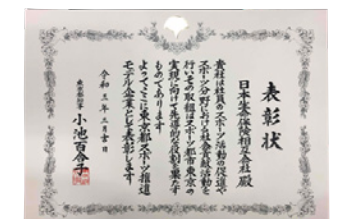 表彰状
日本生命保険相互会社 殿
貴社は社員のスポーツ活動の促進や
スポーツ分野における社会貢献活動を
行いその取組はスポーツ都市東京の
実現に向けて先導的な役割を果たす
ものであります
よってここに東京都スポーツ推進
モデル企業として表彰します
令和三年三月吉日
東京都知事
小池百合子